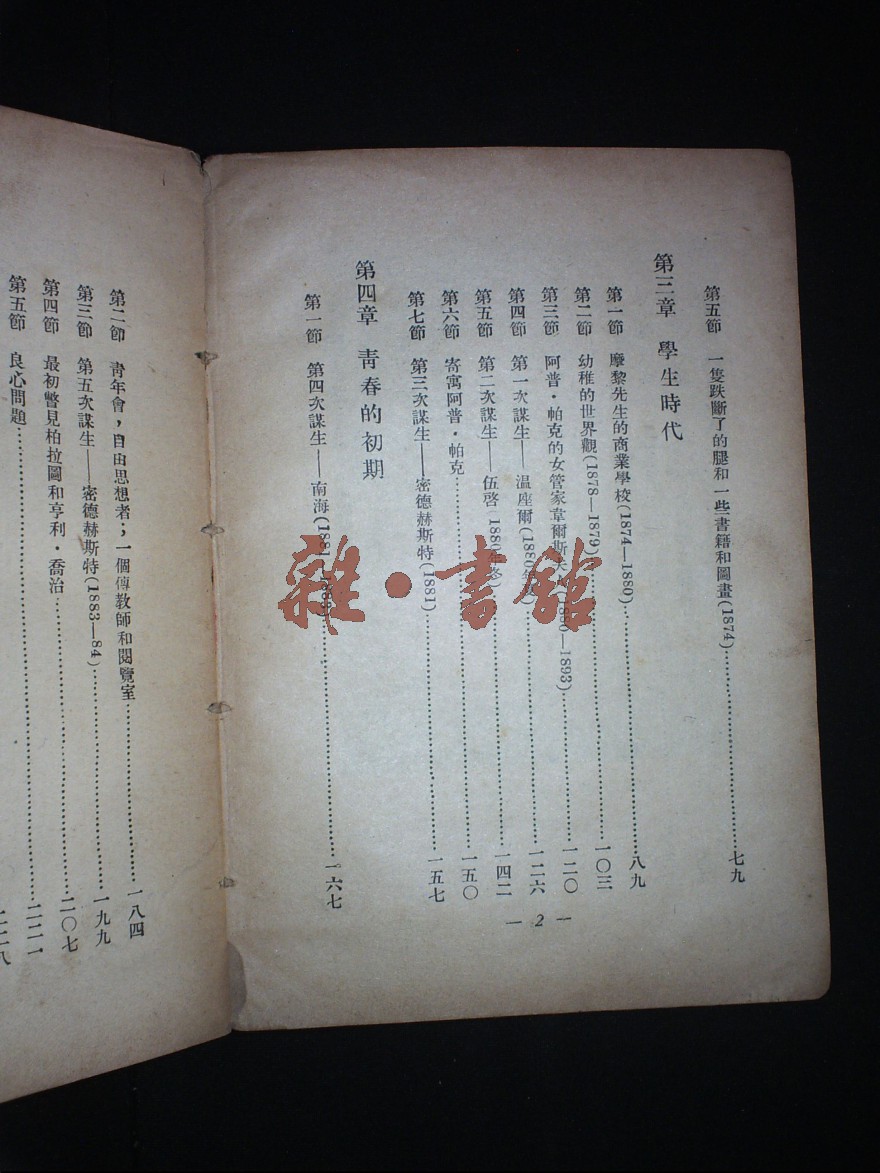 第五節　一隻跌斷了的腿和一些書籍和圖畫(1874)……七九
第三章　學生時代
第一節　摩黎先生的商業學校(1874—1880)……八九
第二節　幼稚的世界觀(1878—1879)……一〇三
第三節　阿普·帕克的女管家韋爾斯夫 1880—1893)……一二〇
第四節　第一次謀生——温座爾(1880年 ……一二六
第五節　第二次謀生——伍啓 188 ……一四二
第六節　寄寓阿普·帕克……一五〇
第七節　第三次謀生——密德赫斯特(1881)……一五七
第四章　青春的初期
第一節　第四次謀生——南海(1881—1883)……一六七
— 2 —
第二節　青年會，自由思想者；一個傳教師和閱覽室……一八四
第三節　第五次謀生——密德赫斯特(1883—84)……一九九
第四節　最初瞥見柏拉圖和亨利·喬治……二〇七
第五節　良心問題……二二一
二二八
雜·書館